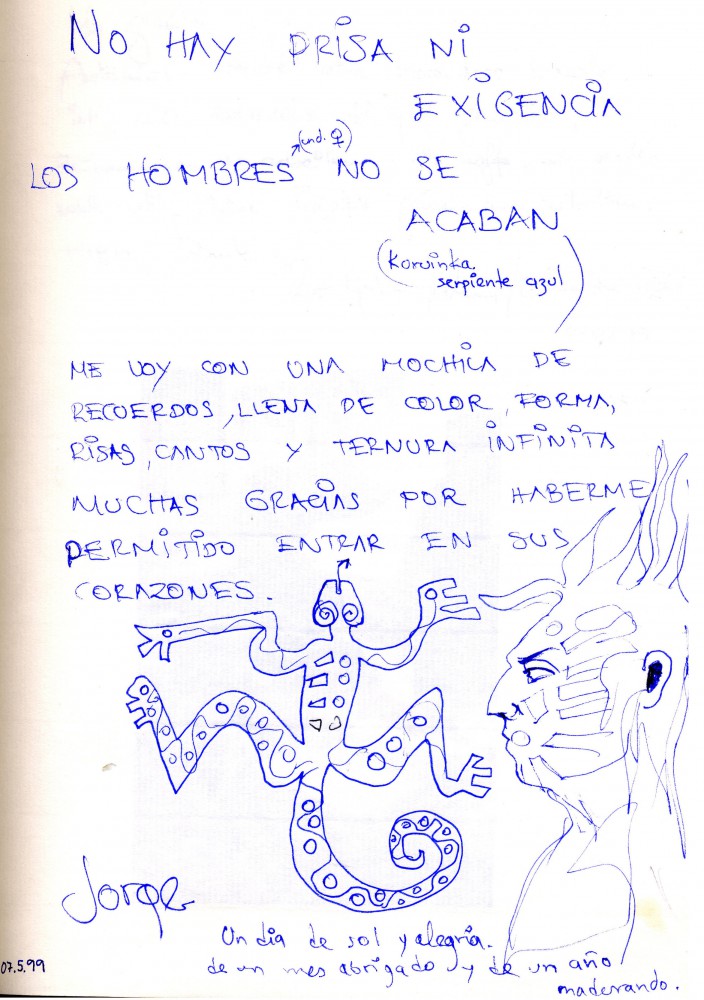 NO HAY PRISA NI
EXIGENCIA
(und. ♀)
LOS HOMBRES NO SE
ACABAN
(Korvinka.
serpiente azul)
ME VOY CON UNA MOCHILA DE
RECUERDOS, LLENA DE COLOR, FORMA,
RISAS, CANTOS Y TERNURA INFINITA
MUCHAS GRACIAS POR HABERME
PERMITIDO ENTRAR EN SUS
CORAZONES.
Jorge
Un dia de sol y alegria.
07.5.99
de un mes abrigado y de un año